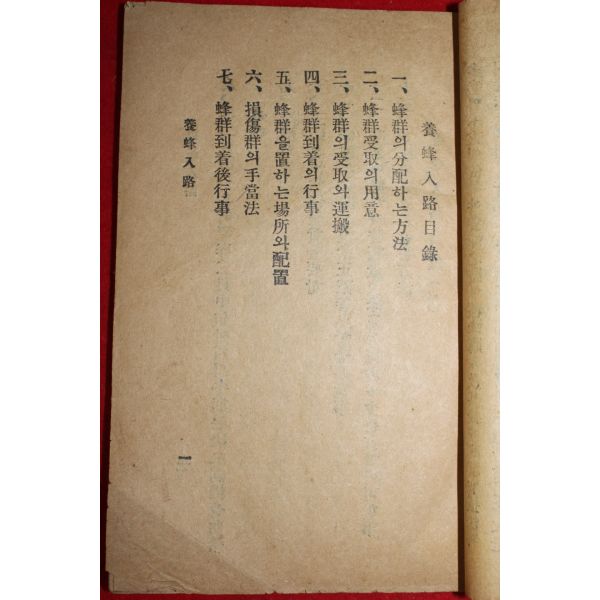 養蜂入路目錄
一、蜂群의分配하는方法
二、蜂群受取의用意
三、蜂群의受取와運搬
四、蜂群到着의行事
五、蜂群을置하는場所와配置
六、損傷群의手當法
七、蜂群到着後行事
養蜂入路
一